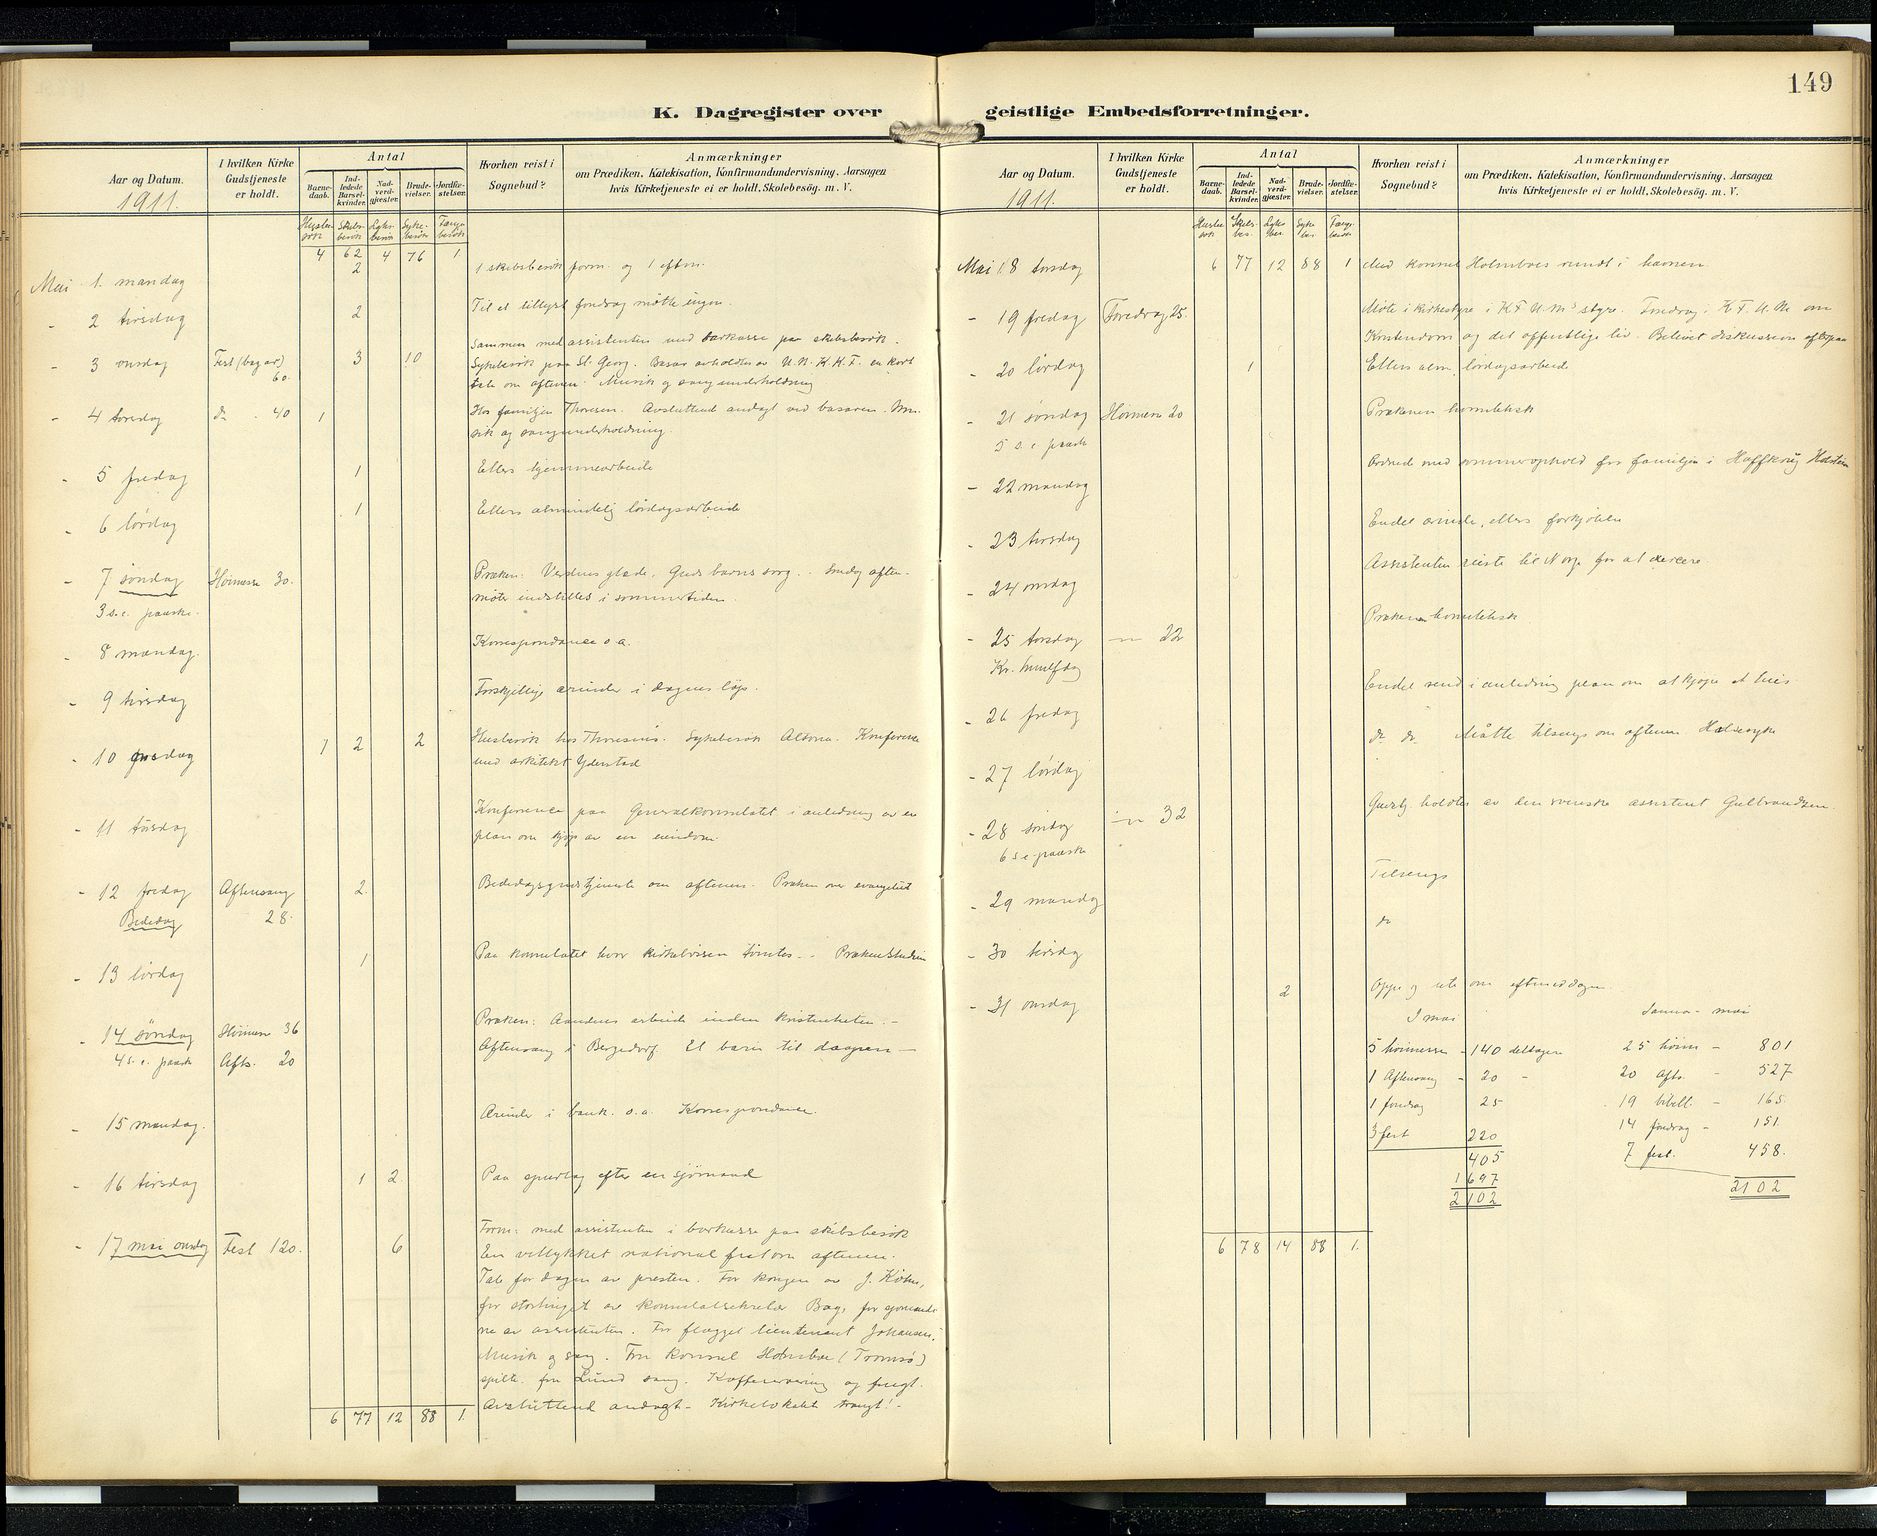 149
K. Dagregister over geistlige Embedsforretninger.
Aar og Datum.
1911.
I hvilken Kirke Gudstjeneste er holdt.
Antal
Barnedaab.
Indledede Barselkvinder.
Nadverdgjæster.
Brudevielser.
Jordfæstelser.
Hvorhen reist i Sognebud?
Anmærkninger
om Prædiken, Katekisation, Konfirmandundervisning. Aarsagen
hvis Kirketjeneste ei er holdt. Skolebesøg. m. V.
4 62 4 76 1
Mai 1. mandag 2 1 skibsbesøk form. og 1 efterm.
- 2 tirsdag 2 Til et tillyst foredrag møtte ingen.
Sammen med assistenten med barkasse paa skibsbesøk.
- 3 onsdag Fest (bazar) 60. 3 10 Sykebesøk paa St. Georg. Basar avholdtes av U. N. K. K. F. en kort
tale om aftenen. Musik og sangunderholdning
- 4 torsdag do. 40 1 Hos familjen Thoresen. Avsluttend andagt ved basaren. Mu-
sik og sangunderholdning.
- 5 fredag 1 Ellers hjemmearbeide
- 6 lørdag 1 Ellers almindelig lørdagsarbeide
- 7 søndag Høimesse 30. Præken: Verdens glæde, Guds barns sorg. - Søndag aften-
3 s. e. paaske. møter indstilles i sommertiden.
- 8 mandag. Korrespondance o. a.
- 9 tirsdag Forskjellige ærinder i dagens løp.
- 10 onsdag 1 2 2 Husbesøk hos Thoresens. Sykebesøk Altona. Konference
med arkitekt Yderstad
- 11 torsdag Konference paa Generalkonsulatet i anledning av en
plan om kjøp av en eiendom.
- 12 fredag Aftensang 2. Bededagsgudstjeneste om aftenen. Præken over evangeliet
Bededag 28.
- 13 lørdag 1 Paa konsulatet hvor kirkebøssen tømtes. - Prækenstudium
- 14 søndag Høimesse 36 Præken: Aandens arbeide inden kristenheten. -
4 s. e. paaske Afts. 20 Aftensang i Bergedorf. Et barn til daapen -
- 15 mandag. Ærinder i bank. o. a. Korrespondance.
- 16 tirsdag 1 2. Paa spørdag efter en sjømand
- 17 mai onsdag Fest 120. 6 Form: med assistenten i barkasse paa skibsbesøk
En vellykket national fest om aftenen.
Tale for dagen av presten. For kongen av J. Köhn,
for stortinget av konsulatsekretær Bag, for sjømænde-
ne av assistenten. For flagget lieutenant Johansen.
Musik og sang. Fru konsul Holmboe (Tromsø)
spilte. fru Lund sang. Kaffeservering og frugt.
Avsluttend andagt - Kirkelokalet trangt! -
6 77 12 88 1.
Aar og Datum.
1911.
I hvilken Kirke Gudstjeneste er holdt.
Antal
Barnedaab.
Indledede Barselkvinder.
Nadverdgjæster.
Brudevielser.
Jordfæstelser.
Hvorhen reist i Sognebud?
Anmærkninger
om Prædiken, Katekisation, Konfirmandundervisning. Aarsagen
hvis Kirketjeneste ei er holdt. Skolebesøg. m. V.
Mai 18 torsdag 6 77 12 88 1 Med konsul Holmboes rundt i havnen
- 19 fredag Foredrag 25. Møte i kirkestyre i K F U M's styre. Foredrag i K. F. U. M. om
Kristendom og det offentlige liv. Belivet diskussion
- 20 lørdag 1 Ellers alm. lørdagsarbeide
- 21 søndag Høimesse 20 Prækenen homiletisk
5 s. e. paaske
- 22 mandag Ordnede med sommerophold for familjen i Haffkrug Holstein
- 23 tirsdag Endel ærinder, ellers forkjølelse
- 24 onsdag Assistenten reiste til Norge for at exercere.
- 25 torsdag -"- 22 Prækenen homiletisk
Kr. himmelfdag
- 26 fredag Endel rend i anledning plan om at kjøpe et hus.
- 27 lørdag do. do. Måtte tilsengs om aftenen Halssyke
- 28 søndag -"- 32 Gudstj. holdtes av den svenske assistent Gulbrandsen.
6 s. e. paaske
- 29 mandag Tilsengs
- 30 tirsdag do
- 31 onsdag 2 Oppe og ute om eftermiddagen.
I mai
5 høimesser - 140 deltagere
1 Aftensang - 20 -
1 foredrag 25
3 fest 220
405
1 697
2 102
Januar - mai
25 høim - 801
20 Afts. - 527
19 bibell. - 165.
14 foredrag - 151.
7 fest. 458.
2102
6 78 14 88 1.